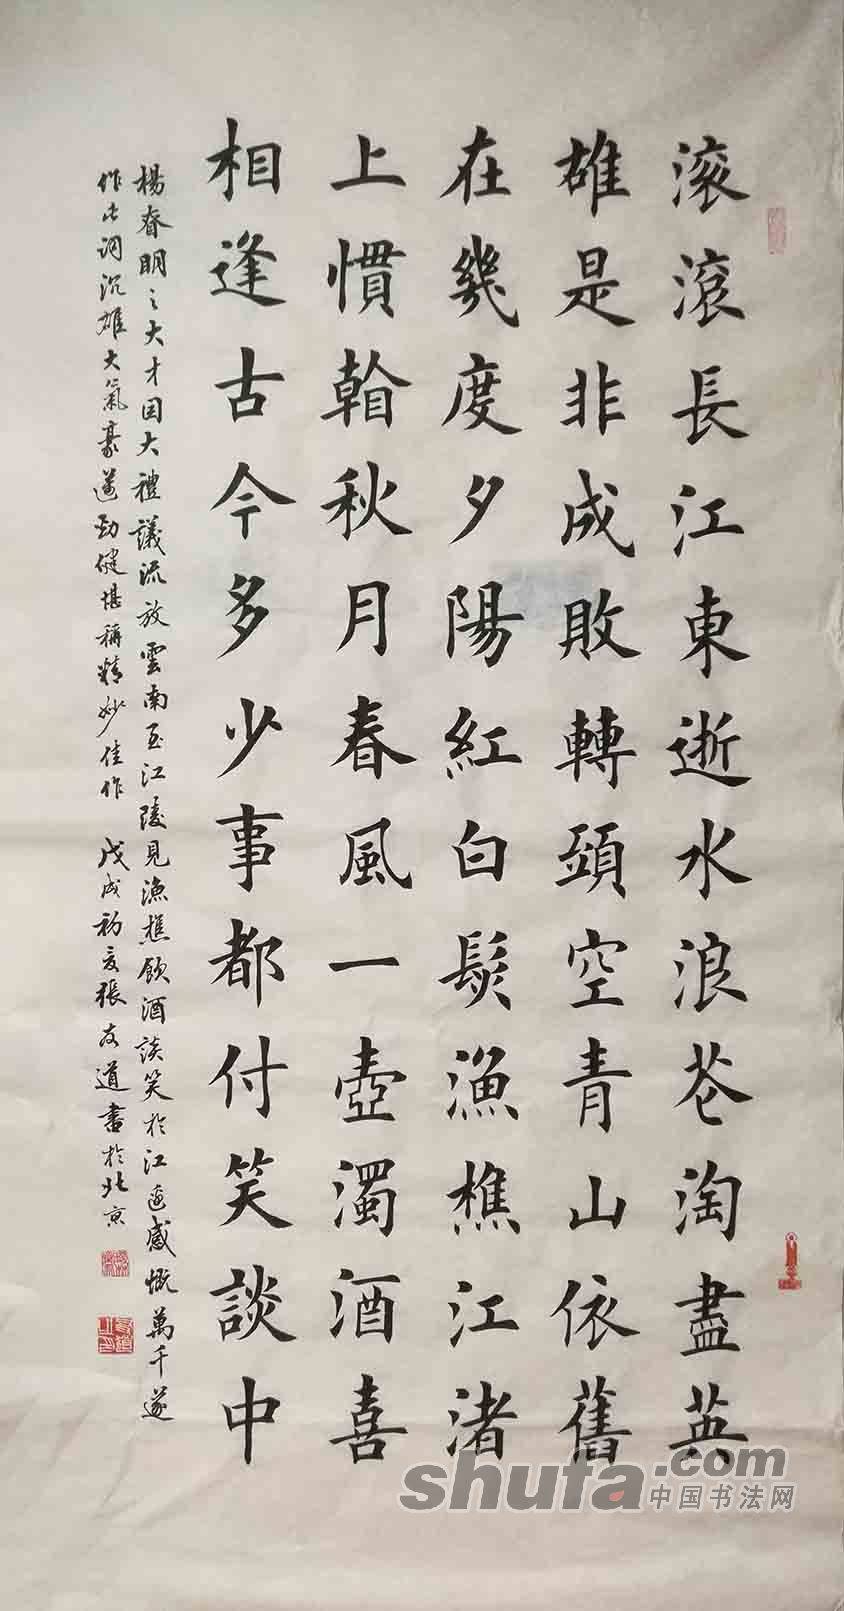 滚滾長江東逝水浪花淘盡英
雄是非成敗轉頭空青山依舊
在幾度夕陽紅白髮漁樵江渚
上慣看秋月春風一壺濁酒喜
相逢古今多少事都付笑談中
楊眘明之大才因大禮議流放雲南至江陵見漁樵飲酒談笑於江邊感慨萬千遂
作此词沉雄大氣豪邁勁健堪稱精妙佳作 戊戌初夏張友道書於北京
shufa.com
中国书法网